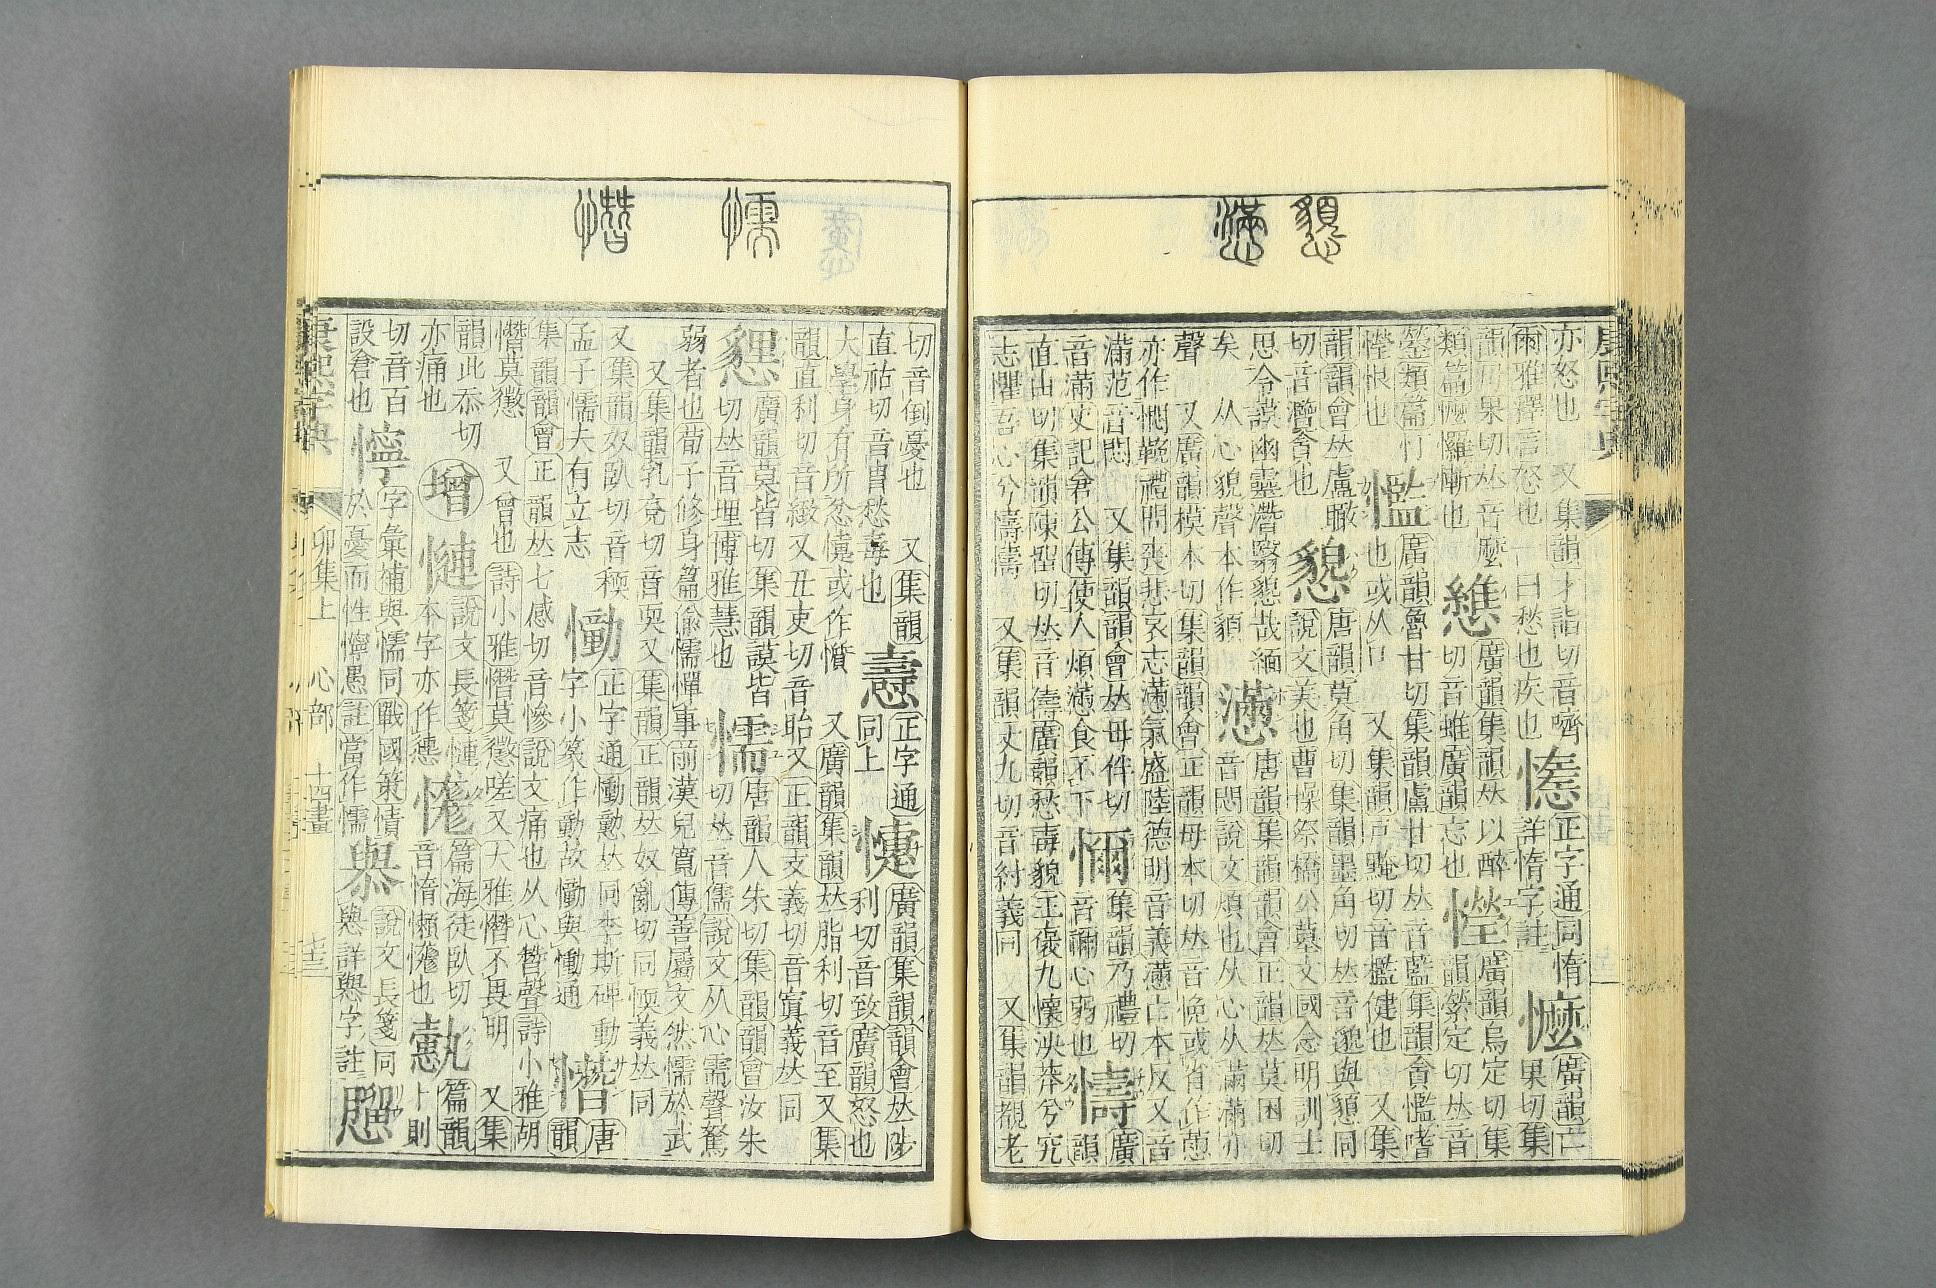 康熙字典
懇
懣
亦怒也　又集韻才詣切音嚌　正字通同惰　懡　廣韻亡
爾雅釋言怒也一曰愁也疾也　詳惰字註　果切集
韻母果切𠀤音麼　廣韻集韻𠀤以醉　廣韻烏定切集
類篇懡㦬慚也　切音蜼廣韻忘也　韻縈定切𠀤音
鎣類篇忊　廣韻魯甘切集韻盧甘切𠀤音藍集韻貪懢嗜
恨也　懢　也或从口　又集韻戸黤切音檻健也　又集
韻韻會𠀤盧瞰　唐韻莫角切集韻墨角切𠀤音邈與藐同
切音濫貪也　懇　說文美也曹操祭橋公墓文國念明訓士
思令謨幽靈潛翳懇哉緬　懣　唐韻集韻韻會正韻𠀤莫困切
矣　从心貌聲本作䫉　音悶說文煩也从心从滿滿亦
聲　又廣韻模本切集韻韻會正韻母本切𠀤音悗或省作
亦作憫鞔禮問喪悲哀志懣氣盛陸德明音義懣亡本反又音
滿范音悶　又集韻韻會𠀤母伴切　集韻乃禮切　廣
音滿史記倉公傳使人煩懣食不下　音禰心弱也　懤　韻
直由切集韻陳留切𠀤音儔廣韻愁毒貌王褒九懷泱莽兮究
志懼吾心兮懤懤　又集韻丈九切音紂義同　又集韻覩老
懦
憯
切音倒憂也　又集韻　正字通　廣韻集韻韻會𠀤陟
直祐切音胄愁毒也　同上　懥　利切音致廣韻怒也
大學身有所忿懥或作懫　又廣韻集韻𠀤脂利切音至又集
韻直利切音緻又丑吏切音眙又正韻支義切音寘義𠀤同
廣韻莫皆切集韻謨皆　懦　唐韻人朱切集韻韻會汝朱
切𠀤音埋博雅慧也　切𠀤音儒說文从心需聲駑
弱者也荀子修身篇偷懦憚事前漢兒寬傳善屬文然懦於武
又集韻乳兗切音耎又集韻正韻𠀤奴亂切同愞義𠀤同
又集韻奴臥切音稬　慟　正字通慟懃𠀤同李斯碑動　憯　唐
孟子懦夫有立志　字小篆作動故慟與慟通　韻
集韻韻會正韻𠀤七感切音慘說文痛也从心朁聲詩小雅胡
憯莫懲　又曾也詩小雅憯莫懲嗟又大雅憯不畏明　又集
韻此忝切　增　慩　說文長箋慩　篇海徒臥切　篇韻
亦痛也　本字亦作　音惰懶㦬也　卜則
切音百　懧　字彙補與懦同戰國策憒　說文長箋同
設倉也　於憂而性懧愚註當作懦　詳字註
康熙字典　卯集上　心部　十四畫　七十三